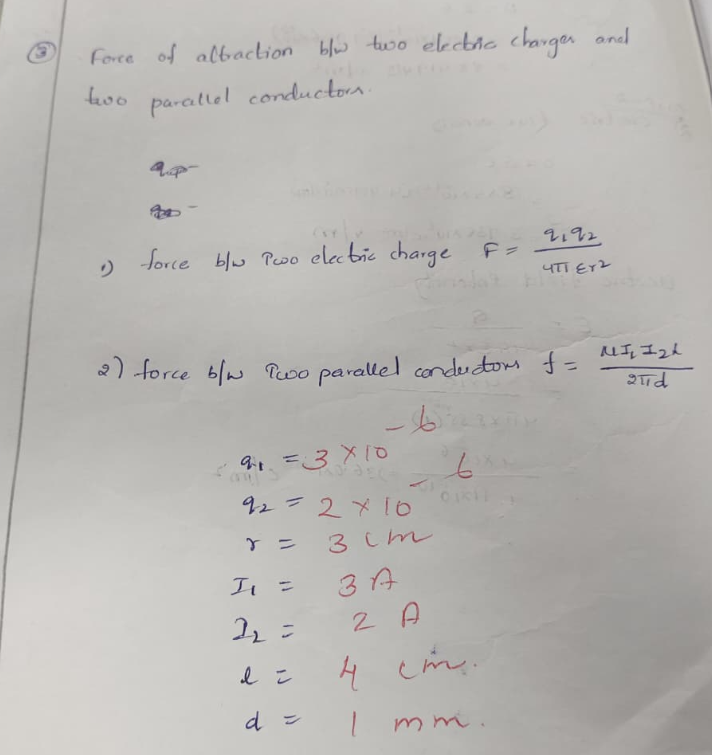 ③ Force of attraction b/w two electric charges and
two parallel conductors.
1) force b/w Two electric charge F = q₁q₂ / 4π εr²
2) force b/w Two parallel conductors f = μI₁I₂l / 2πd
q₁ = 3 × 10⁻⁶
q₂ = 2 × 10⁻⁶
r = 3 cm
I₁ = 3 A
I₂ = 2 A
l = 4 cm.
d = 1 mm.